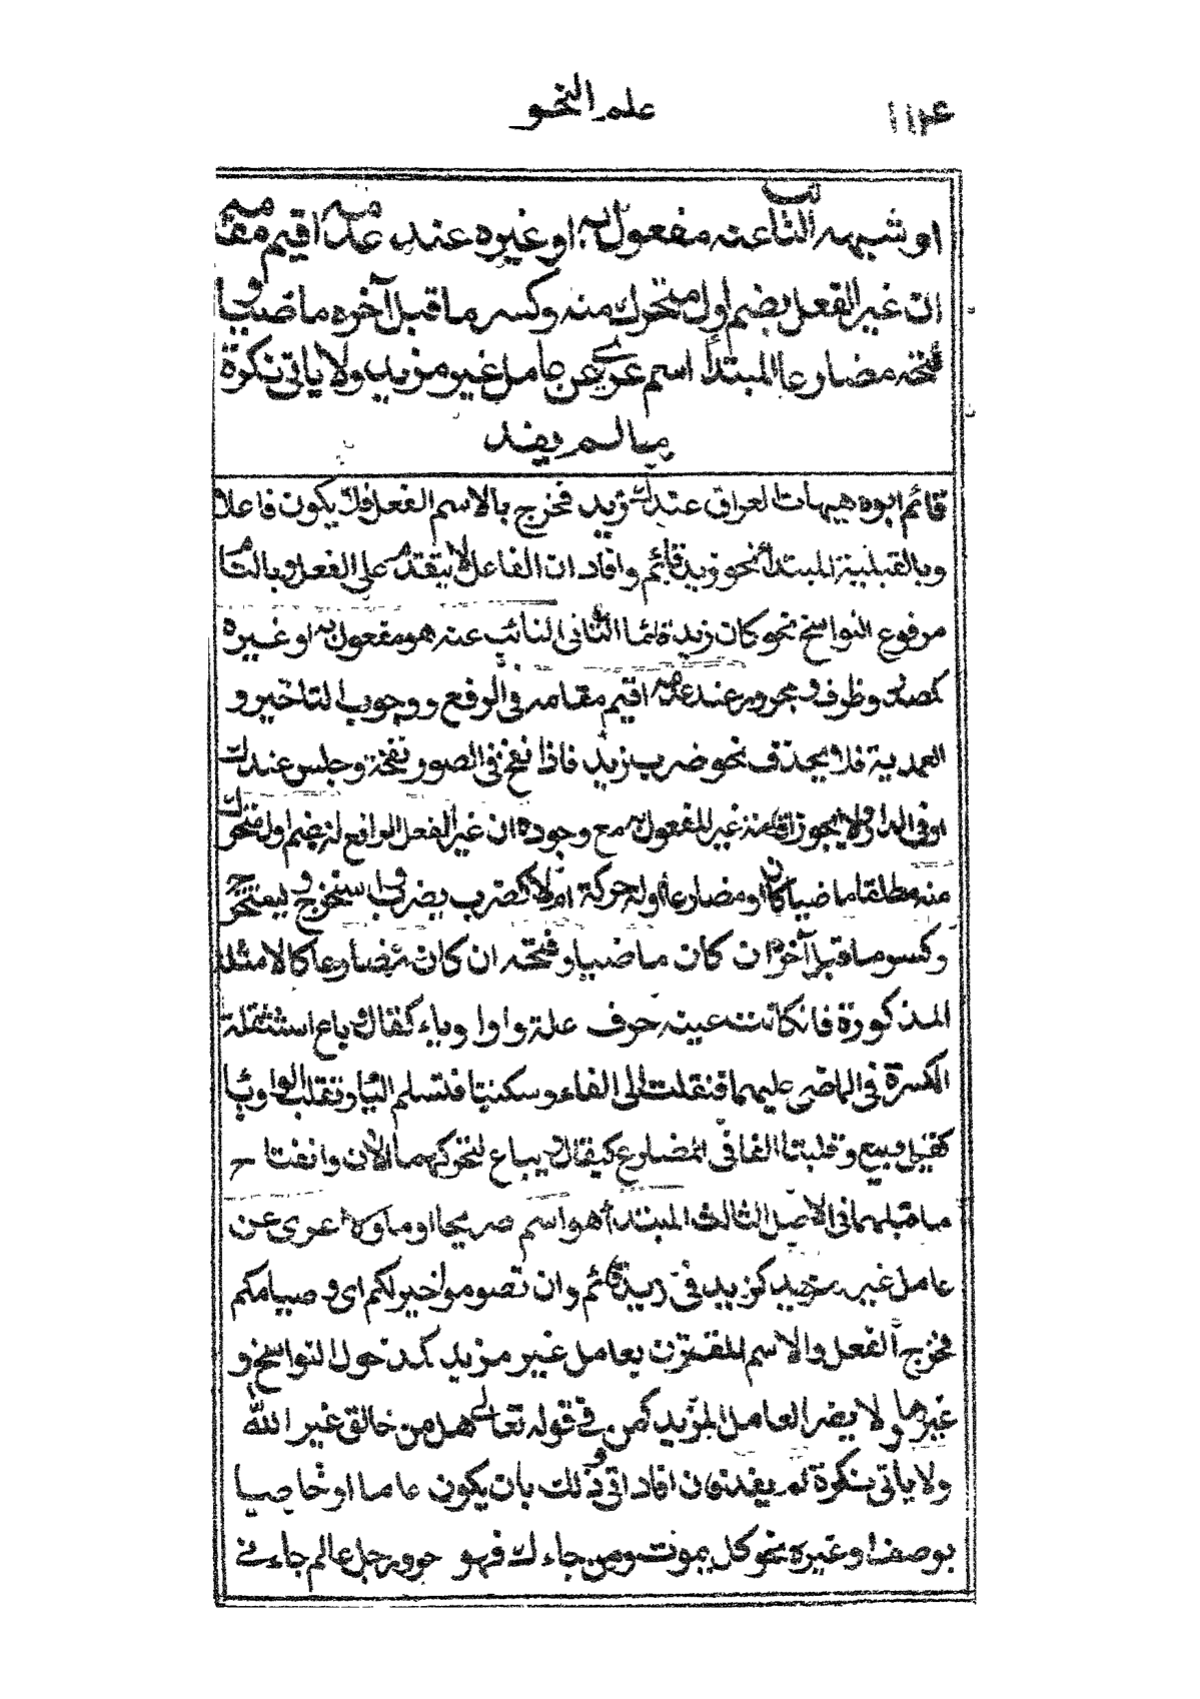 ١١٤ علم النحو
او شبهه النائب عنه مفعول به او غيره عند عدمه اقيم مقامه
ان غير الفعل بضم اول متحرك منه وكسر ما قبل آخره ماضيا و
فتحه مضارعا المبتدأ اسم عرى عن عامل غير مزيد ولا ياتى نكرة
ما لم يفد
قائم ابوه هيهات العراق عندك زيد فخرج بالاسم الفعل فلا يكون فاعلا
وبالقبلية المبتدأ نحو زيد قائم وافاد ان الفاعل لا يتقدم على الفعل وبالتام
مرفوع النواسخ نحو كان زيد قائما الثانى النائب عنه هو مفعول به او غيره
كمصدر وظرف ومجرور عند عدمه اقيم مقامه فى الرفع ووجوب التاخير و
العمدية فلا يحذف نحو ضرب زيد فاذا نفخ فى الصور نفخة وجلس عندك
او فى الدار ولا يجوز اقامة غير المفعول به مع وجوده ان غير الفعل الرافع له بضم اول متحرك
منه مطلقا ماضيا كان او مضارعا اوله حركة ام لا كضرب يضرب و استخرج و
وكسر ما قبل آخره ان كان ماضيا وفتحه ان كان مضارعا كالامثلة
المذكورة فان كانت عينه حرف علة واوا وياء كقال وباع استثقلت
الكسرة فى الماضى عليهما فنقلت الى الفاء وسكنتا فتسلم اليا وتقلب الواو يا
كقيل وبيع وقلبتا الفا فى المضارع كيقال ويباع لتحركهما الآن وانفتاح
ما قبلهما فى الاصل الثالث المبتدأ هو اسم صريحا او ماولا عرى عن
عامل غير مزيد كزيد فى زيد قائم وان تصوموا خير لكم اى وصيامكم
فخرج الفعل والاسم المقترن بعامل غير مزيد كمدخول النواسخ و
غيرها ولا يضر العامل المزيد كمن فى قوله تعالى هل من خالق غير الله
ولا يأتى نكرة لم يفد فان افاد اتى وذلك بان يكون عاما او خاصا
بوصف او غيره نحو كل يموت ومن جاءك فهو حر ورجل عالم جاءنى